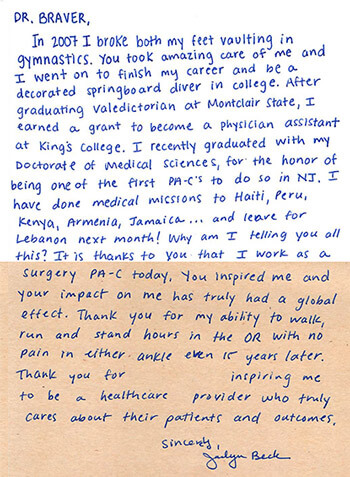 DR. BRAVER,
In 2007 I broke both my feet vaulting in
gymnastics. You took amazing care of me and
I went on to finish my career and be a
decorated springboard diver in college. After
graduating valedictorian at Montclair State, I
earned a grant to become a physician assistant
at King's College. I recently graduated with my
Doctorate of Medical Sciences, for the honor of
being one of the first PA-C's to do so in NJ. I
have done medical missions to Haiti, Peru,
Kenya, Armenia, Jamaica... and leave for
Lebanon next month! Why am I telling you all
this? It is thanks to you that I work as a
surgery PA-C today. You inspired me and
your impact on me has truly had a global
effect. Thank you for my ability to walk,
run and stand hours in the OR with no
pain in either ankle even 15 years later.
Thank you for inspiring me
to be a healthcare provider who truly
cares about their patients and outcomes.
Sincerely,
Jailyn Beck